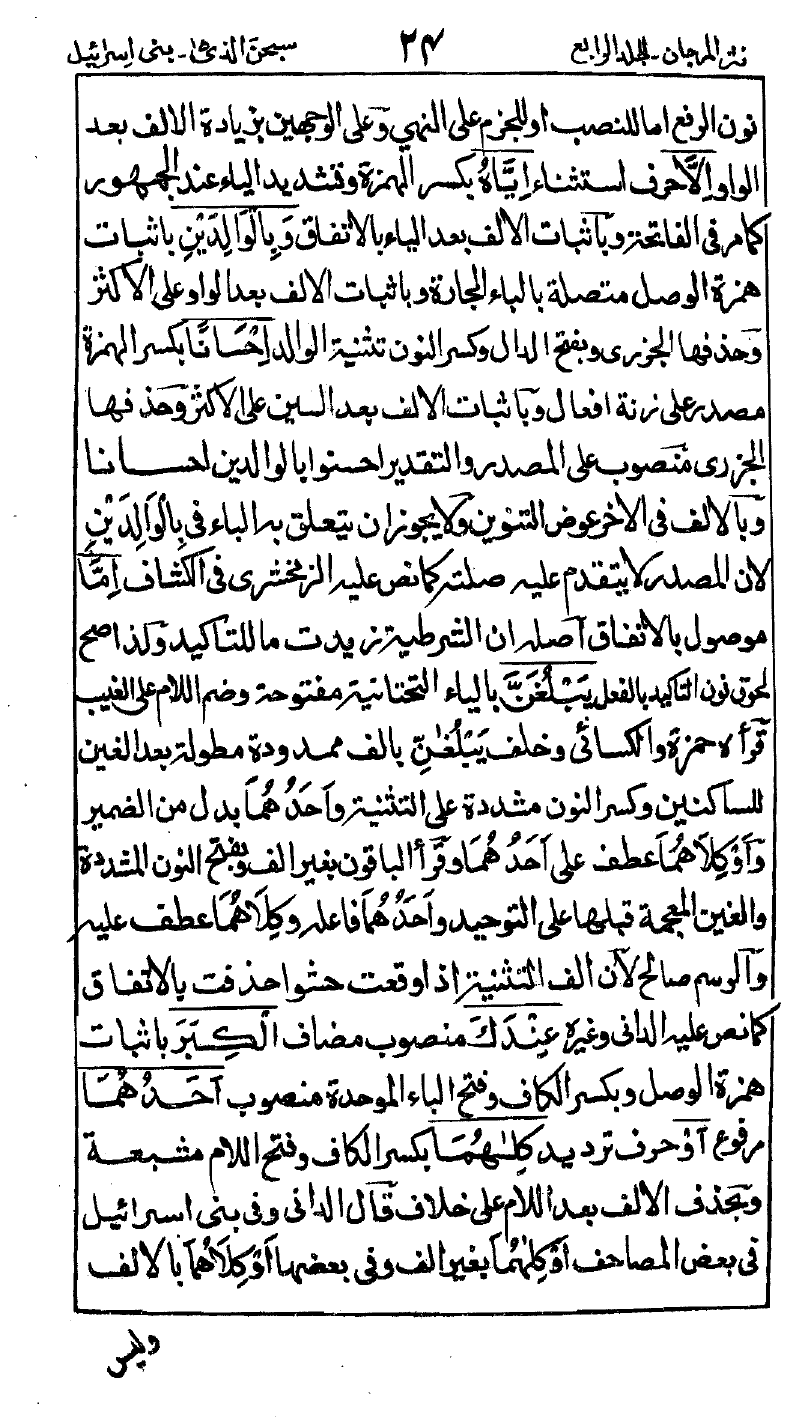 نثر المرجان - لجلد الرابع ٢٤ سبحٰن الذى ١٥ - بنى اسرائيل
نون الرفع اما للنصب او للجزم على النهي وَعلى الوجهين بزيادة الالف بعد
الواو اِلَّا حرف استثناء اِيَّاهُ بكسر الهمزة وتشديد الياء عند الجمهور
كما مر فى الفاتحة وبَاثبات الالف بعد الياء بالاتفاق وَبِالْوَالِدَيْنِ باثبات
همزة الوصل متصلة بالباء الجارة وباثبات الالف بعد الواو على الاكثر
وَحذفها الجزرى وبفتح الدال وكسر النون تثنية الوالد اِحْسَانًا بكسر الهمزة
مصدر على زنة افعال وبَاثبات الالف بعد السين على الاكثر وَحذفها
الجزرى مَنصوب على المصدر والتقدير احسنوا بالوالدين احسانا
وَبالالف فى الاخر عوض التنوين ولا يجوز ان يتعلق به الباء فى بِالْوَالِدَيْنِ
لان المصدر لا يتقدم عليه صلته كما نص عليه الزمخشرى فى الكشاف اِمَّا
موصول بالاتفاق آصله ان الشرطية زيدت ما للتاكيد وَلذا صح
لحوق نون التاكيد بالفعل يَبْلُغَنَّ بالياء التحتانية مفتوحة وضم اللام على الغيب
قَرأه حمزة والكسائى وخلف يَبْلُغٰنِّ بالف ممدودة مطولة بعد الغين
للساكنين وكسر النون مشددة على التثنية وَاَحَدُهُمَا بدل من الضمير
وَاَوْ كِلَاهُمَا عطف على اَحَدُهُمَا وقَرأ الباقون بغير الف وبفتح النون المشددة
والغين المعجمة قبلها على التوحيد واَحَدُهُمَا فاعله وكِلَاهُمَا عطف عليه
وآلرسم صالح لآن الف التثنية اذا وقعت حشوا حذفت بالاتفاق
كما نص عليه الدانى وغيره عِنْدَكَ منصوب مضاف الْكِبَرَ باثبات
همزة الوصل وبكسر الكاف وفتح الباء الموحدة منصوب اَحَدُهُمَا
مرفوع آوْ حرف ترديد كِلٰهُمَا بكسر الكاف وفتح اللام مشبعة
وبَحذف الالف بعد اللام على خلاف قَال الدانى وفى بنى اسرائيل
فى بعض المصاحف اَوْ كِلٰهُمَا بغير الف وفى بعضها اَوْ كِلَاهُمَا بالالف
وليس